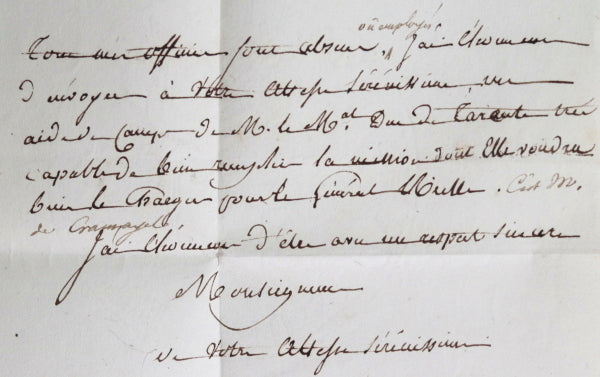 ou employés
Tous mes officiers sont absens. J'ai l'honneur
d'envoyer à Votre Altesse Sérénissime, un
aide de Camp de M. le M.al Duc de Tarente très
capable de bien remplir la mission dont Elle voudra
bien le charger pour le Général Miollis. C'est M.
de Crampagel
J'ai l'honneur d'être avec un respect sincere
Monseigneur
de Votre Altesse Sérénissime